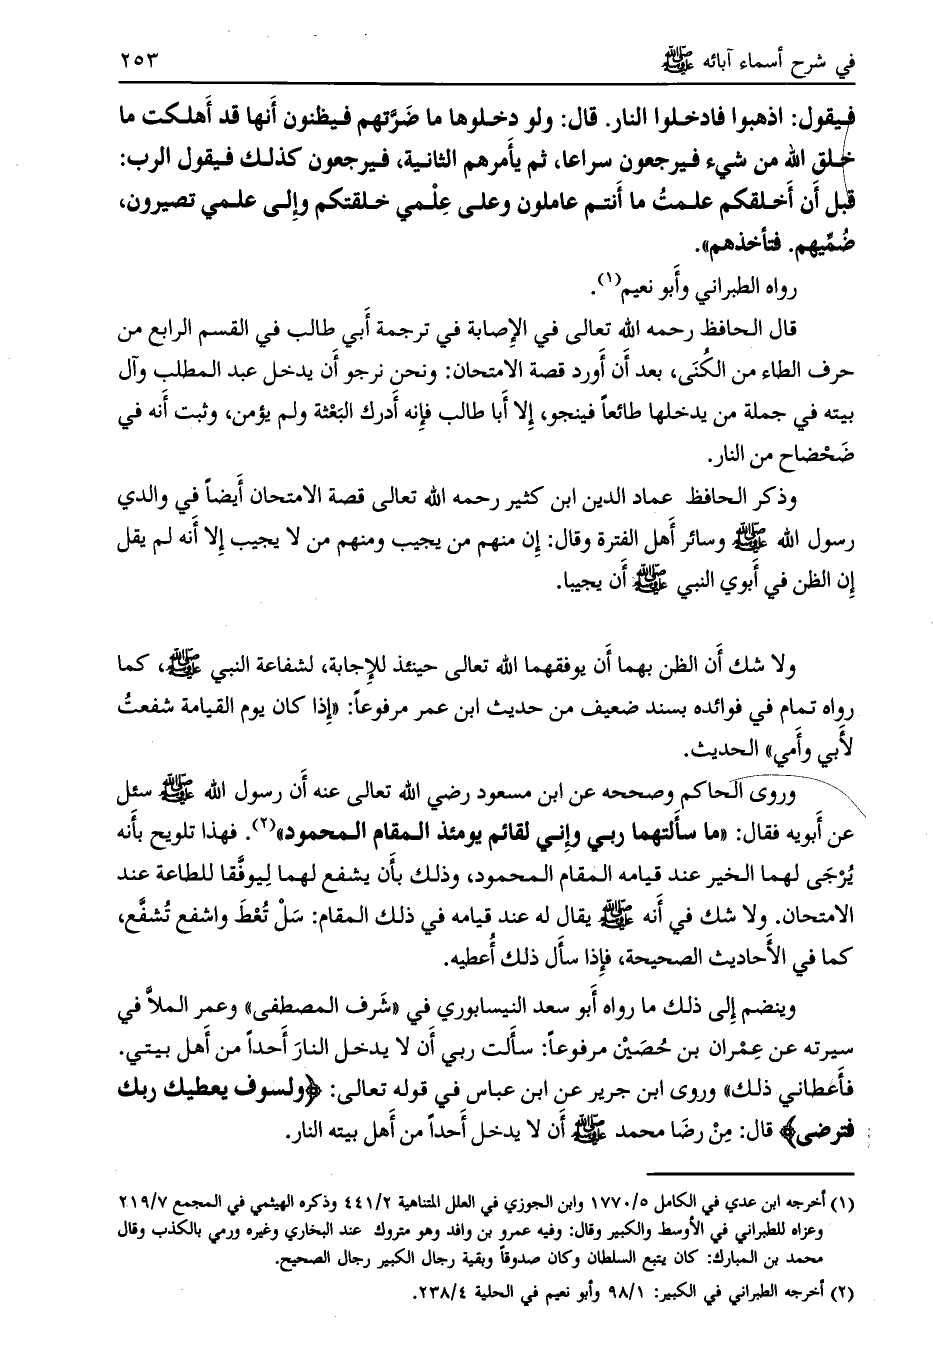 في شرح أسماء آبائه ﷺ ٢٥٣
فيقول: اذهبوا فادخلوا النار. قال: ولو دخلوها ما ضَرَّتهم فيظنون أَنها قد أَهلكت ما
خلق الله من شيء فيرجعون سراعا، ثم يأمرهم الثانية، فيرجعون كذلك فيقول الرب:
قبل أن أَخلقكم علمتُ ما أَنتم عاملون وعلى عِلْمي خلقتكم وإِلى علمي تصيرون،
ضُمِّيهم. فتأخذهم».
رواه الطبراني وأَبو نعيم(١).
قال الحافظ رحمه الله تعالى في الإِصابة في ترجمة أَبي طالب في القسم الرابع من
حرف الطاء من الكُنَى، بعد أَن أَورد قصة الامتحان: ونحن نرجو أَن يدخل عبد المطلب وآل
بيته في جملة من يدخلها طائعاً فينجو، إِلا أَبا طالب فإِنه أَدرك البَعْثة ولم يؤمن، وثبت أَنه في
ضَحْضاح من النار.
وذكر الحافظ عماد الدين ابن كثير رحمه الله تعالى قصة الامتحان أَيضاً في والدي
رسول الله ﷺ وسائر أَهل الفترة وقال: إِن منهم من يجيب ومنهم من لا يجيب إِلا أَنه لم يقل
إِن الظن في أَبوي النبي ﷺ أَن يجيبا.
ولا شك أَن الظن بهما أَن يوفقهما الله تعالى حينئذ للإِجابة، لشفاعة النبي ﷺ، كما
رواه تمام في فوائده بسند ضعيف من حديث ابن عمر مرفوعاً: «إِذا كان يوم القيامة شفعتُ
لأَبي وأَمي» الحديث.
وروى الحاكم وصححه عن ابن مسعود رضي الله تعالى عنه أَن رسول الله ﷺ سئل
عن أَبويه فقال: «ما سأَلتهما ربي وإِني لقائم يومئذ المقام المحمود»(٢). فهذا تلويح بأَنه
يُرْجَى لهما الخير عند قيامه المقام المحمود، وذلك بأَن يشفع لهما لِيوفَّقا للطاعة عند
الامتحان. ولا شك في أَنه ﷺ يقال له عند قيامه في ذلك المقام: سَلْ تُعْطَ واشفع تُشفَّع،
كما في الأَحاديث الصحيحة، فإِذا سأَل ذلك أُعطيه.
وينضم إِلى ذلك ما رواه أَبو سعد النيسابوري في «شَرف المصطفى» وعمر الملاَّ في
سيرته عن عِمْران بن حُصَيْن مرفوعاً: سأَلت ربي أَن لا يدخل النارَ أَحداً من أَهل بيتي.
فأَعطاني ذلك» وروى ابن جرير عن ابن عباس في قوله تعالى: ﴿ولسوف يعطيك ربك
فترضى﴾ قال: مِنْ رضَا محمد ﷺ أَن لا يدخل أَحداً من أَهل بيته النار.
(١) أخرجه ابن عدي في الكامل ١٧٧٠/٥ وابن الجوزي في العلل المتناهية ٤٤١/٢ وذكره الهيثمي في المجمع ٢١٩/٧
وعزاه للطبراني في الأوسط والكبير وقال: وفيه عمرو بن واقد وهو متروك عند البخاري وغيره ورمي بالكذب وقال
محمد بن المبارك: كان يتبع السلطان وكان صدوقاً وبقية رجال الكبير رجال الصحيح.
(٢) أخرجه الطبراني في الكبير: ٩٨/١ وأبو نعيم في الحلية ٢٣٨/٤.